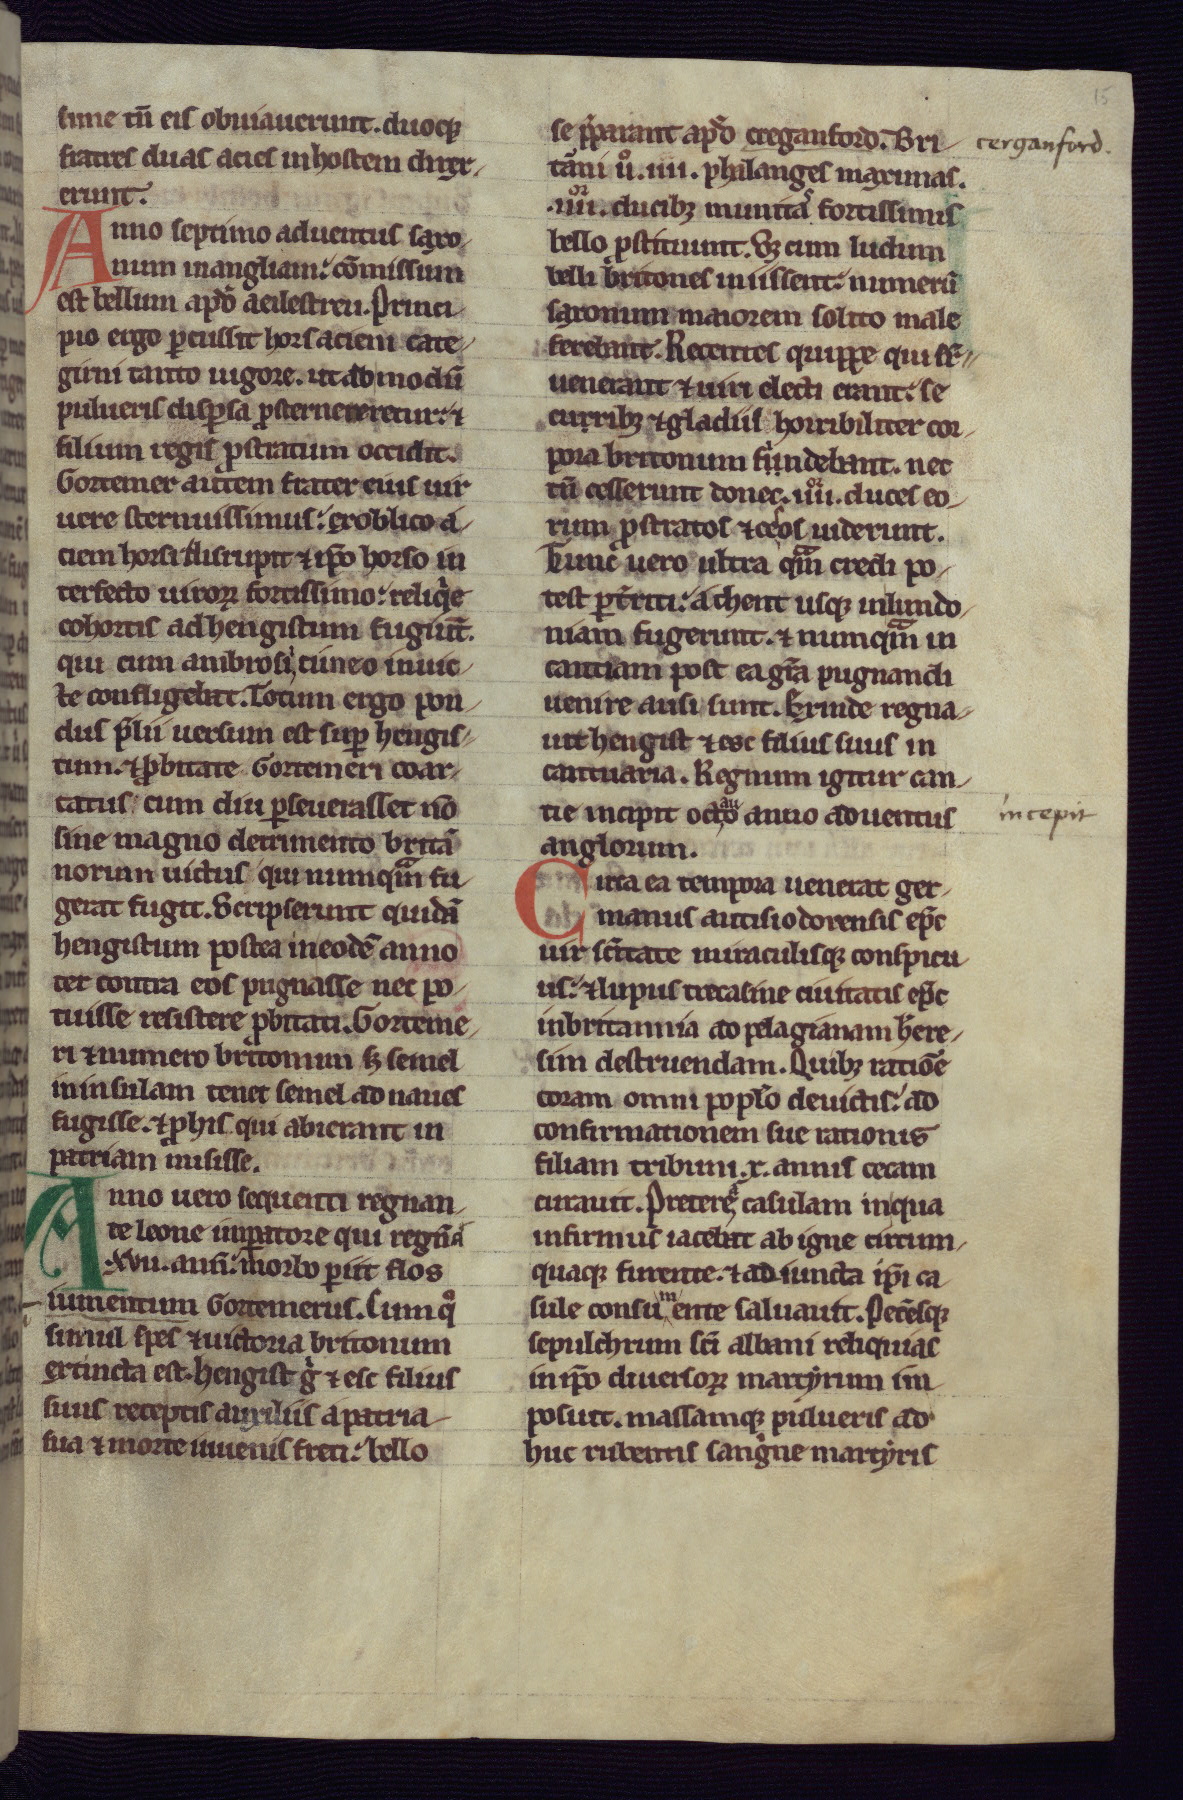 sime tn̄ eis obuiauerunt. duoqꝫ
fratres duas acies in hostem direx-
erunt.
Anno septimo aduentus saxo-
num in angliam: cōmissum
est bellum apd̄ aeilestreu. Princi-
pio ergo ꝑcussit hors aciem cate-
girni tanto uigore. ut ad modū
pulueris disꝑsa ꝓsterneretur: ⁊
filium regis ꝓstratum occidit.
Gortemer autem frater eius uir
uere strenuissimus: ex oblico a-
ciem horsi disrupit ⁊ ip̄o horso in
terfecto uiroꝝ fortissimo: reliqͥe
cohortis ad hengistum fugiūt.
qui cum ambrosij cuneo inuic-
te confligebat. Totum ergo pon-
dus p̄lii uersum est suꝑ hengis-
tum. ⁊ ꝓbitate Gortemeri coar-
tatus cum diu ꝑseuerasset nō
sine magno detrimento britā
norum uictus qui numqͣm fu
gerat fugit. Scripserunt quidā
hengistum postea in eodē anno
ter contra eos pugnasse nec po-
tuisse resistere ꝓbitati. Gorteme-
ri ⁊ numero britonum sꝫ semel
in insulam tenet semel ad naues
fugisse. ⁊ ꝓ his qui abierant in
patriam misisse.
Anno uero sequenti regnan-
te leone imꝑatore qui regn̄a
.xvii. ann̄: morbo ꝑiit flos
iuuentum Gortemerus. Cum qͦ
simul spes ⁊ uictoria britonum
extincta est. hengist gͥ ⁊ esc filius
suus receptis auxiliis a patria
sua ⁊ morte iuuenis freti: bello
se p̄parant apd̄ creganford. Bri-
tāni uͦ. iiii. phalanges maximas.
.iiiior. ducibꝫ munitas fortissimis
bello ꝓstituunt. Sꝫ cum ludum
belli britones iniissent: numerū
saxonum maiorem solito male
ferebant. Recentes quippe qui sr̄-
uenerant ⁊ uiri electi erant: se
curribꝫ ⁊ gladiis horribiliter cor-
pora britonum findebant. nec
tn̄ cesserunt donec. iiiior. duces eo-
rum ꝓstratos ⁊ cesos uiderunt.
Tunc uero ultra qͣm credi po-
test ꝑt̄riti: a chent usqꝫ in lundo-
niam fugerunt. ⁊ numqͣm in
cantiam post ea gr̄a pugnandi
uenire ausi sunt. Exinde regna-
uit hengist ⁊ esc filius suus in
cantuaria. Regnum igitur can-
tie incipit octauo anno aduentus
anglorum.
Circa ea tempora uenerat ger-
manus autisiodorensis ep̄c
uir sc̄itate miraculisqꝫ conspicu
us: ⁊ lupus trecasine ciuitatis ep̄c
in britannia ad pelagianam here-
sim destruendam. Quibꝫ ratiōe
coram omni poplo deuictis: ad
confirmationem sue rationis
filiam tribuni .x. annis cecam
curauit. Preterea casulam in qua
infirmus iacebat ab igne circum-
quaqꝫ furente. ⁊ ad iuncta ip̄i ca
sule consumente saluauit. Petēsqꝫ
sepulchrum sc̄i albani reliquias
in ip̄o diuersoꝝ martyrum im
posuit. massamqꝫ pulueris ad
huc rubentis sangͥne martyris
15
cerganford.
incepit